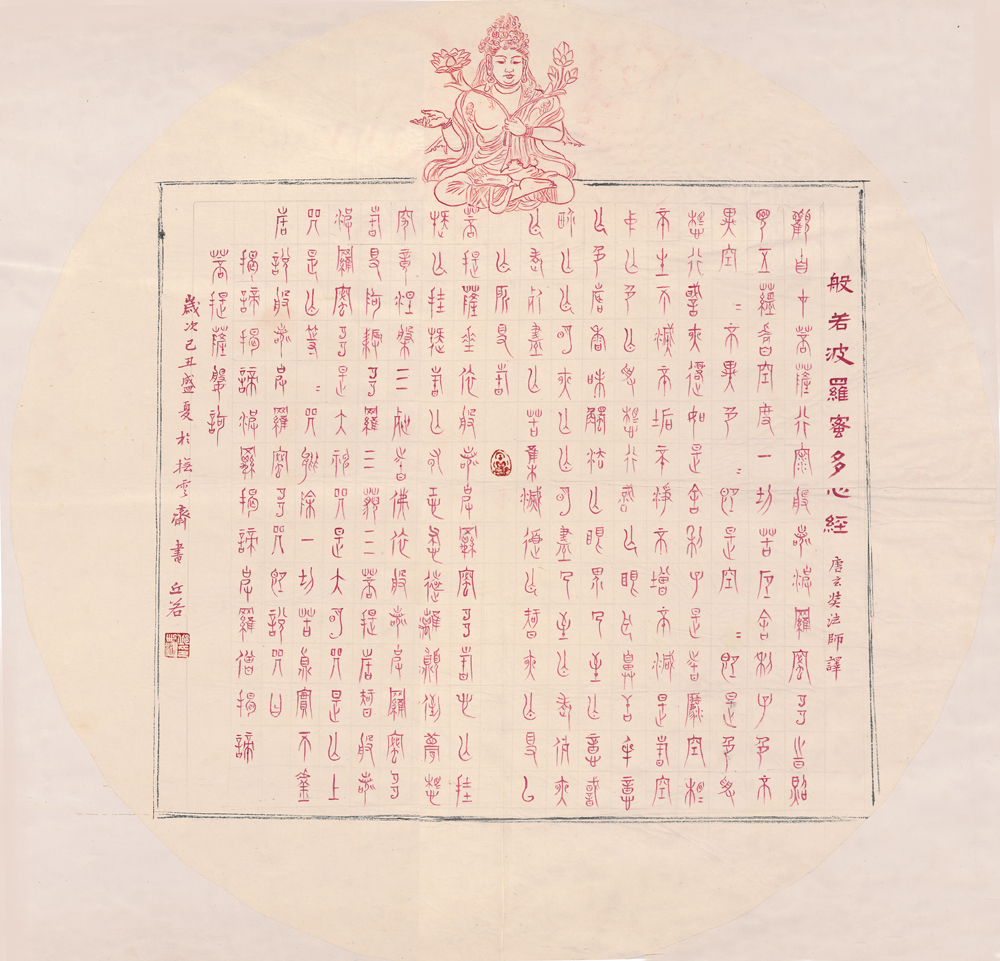 般若波羅蜜多心經 唐玄奘法師譯
觀自在菩薩行深般若波羅密多時照
見五蘊皆空度一切苦厄舍利子色不
異空=不異色=即是空=即是色受
想行識亦復如是舍利子是諸法空相
不生不滅不垢不淨不增不減是故空
中无色无受想行識无眼耳鼻舌身意
无色聲香味觸法无眼界乃至无意識
界无无明亦无无明盡乃至无老死亦
无老死盡无苦集滅道无智亦无得以
无所得故
菩提薩埵依般若波羅密多故心无罣
礙无罣礙故无有恐怖遠離顛倒夢想
究竟涅槃三世諸佛依般若波羅密多
故得阿耨多羅三藐三菩提故知般若
波羅密多是大神咒是大明咒是无上
咒是无等=咒能除一切苦真實不虛
故說般若波羅密多咒即說咒曰
揭諦揭諦波羅揭諦波羅僧揭諦
菩提薩婆訶
歲次己丑盛夏於雲齋書 丘若